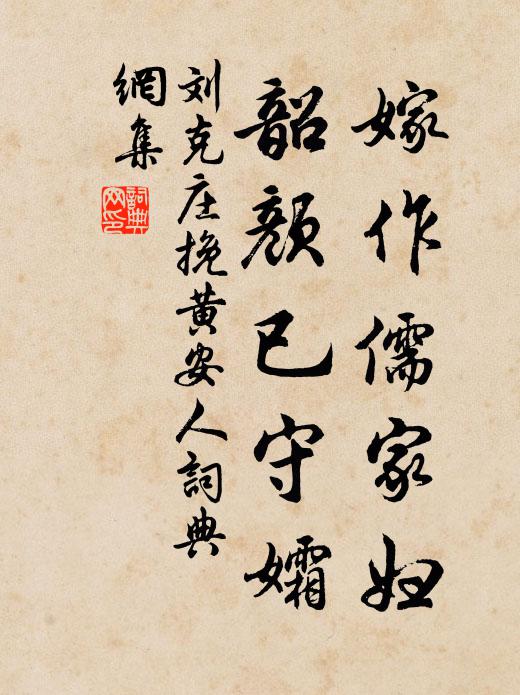 嫁作儒家妇
韶颜已守孀
刘克庄挽黄安人詞典
網集
詞典网印